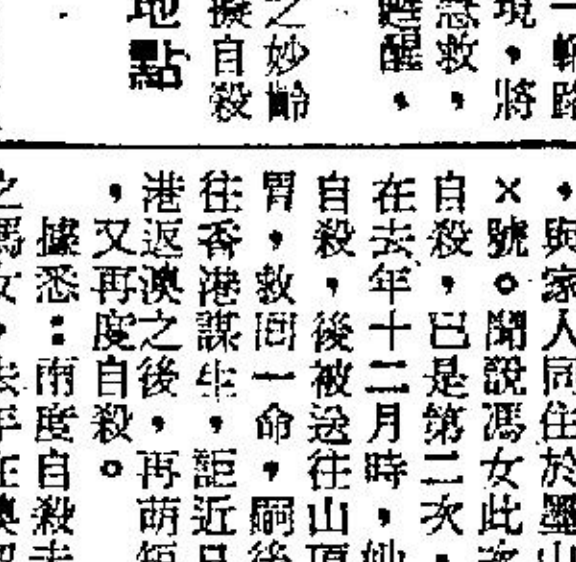 一輛路
現，將
急救，
甦醒，
之妙齡
擬自殺
地點
，與家人同住於墨山
×號。聞說馮女此次
自殺，已是第二次，
在去年十二月時，她
自殺，後被送往山頂
胃，救回一命，嗣後
往香港謀生，詎近日
港返澳之後，再萌短
，又再度自殺。
據悉：兩度自殺未
之馮女，去年在澳